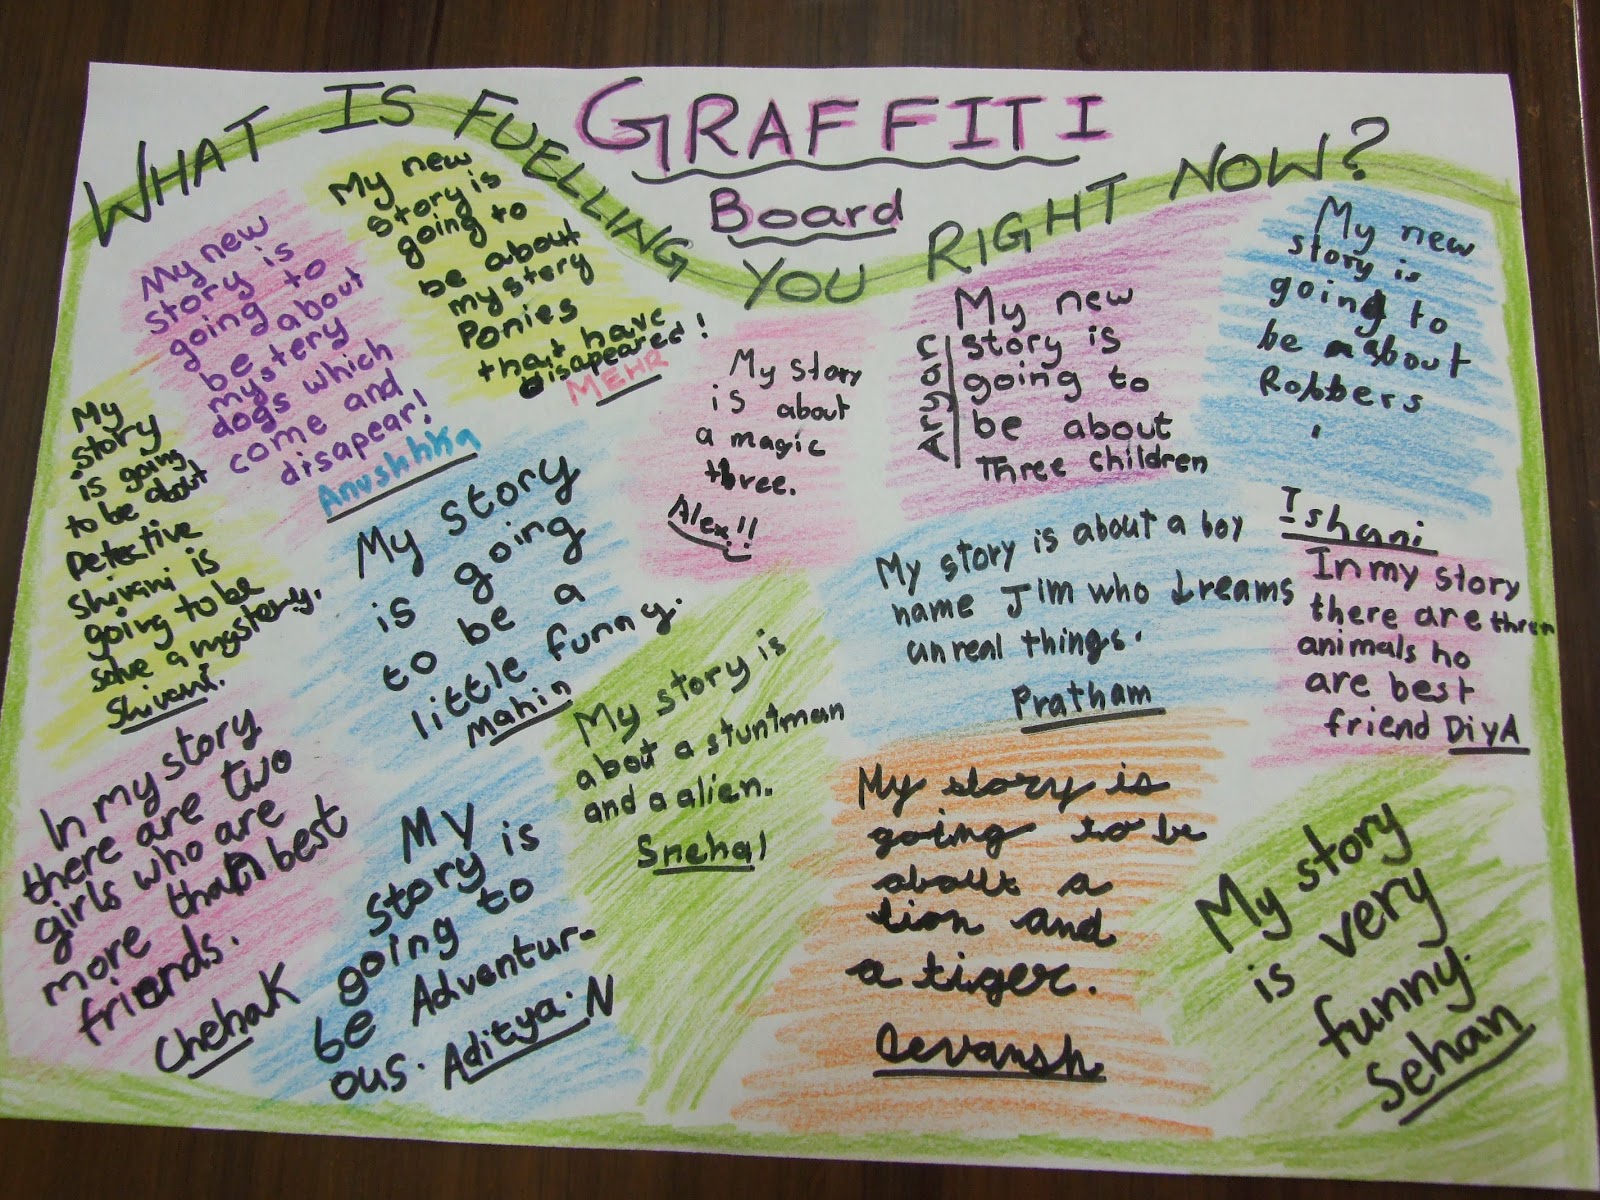 GRAFFITI
Board
WHAT IS FUELLING YOU RIGHT NOW?
My new
story is
going to
be about
mystery
dogs which
come and
disapear!
Anushhka
My new
story is
going to
be about
mystery
Ponies
that have
disapeared!
MEHR
My story
is about
a magic
three.
Alex!!
My new
story is
going to
be about
Three children
Aryan
My new
story is
going to
be about
Robbers
Ishani
My
story
is going
to be about
Detective
Shivani is
going to be
solve a mystery.
Shivani.
My story
is going
to be a
little funny.
Mahin
My story is about a boy
name Jim who dreams
unreal things.
Pratham
In my story
there are three
animals ho
are best
friend DiyA
In my story
there are two
girls who are
more than best
friends.
Chehak
My
story is
going to
be Adventur-
ous. Aditya.N
My story is
about a stuntman
and a alien.
Snehal
My story is
going to be
about a
lion and
a tiger.
Devansh
My story
is very
funny.
Sehan